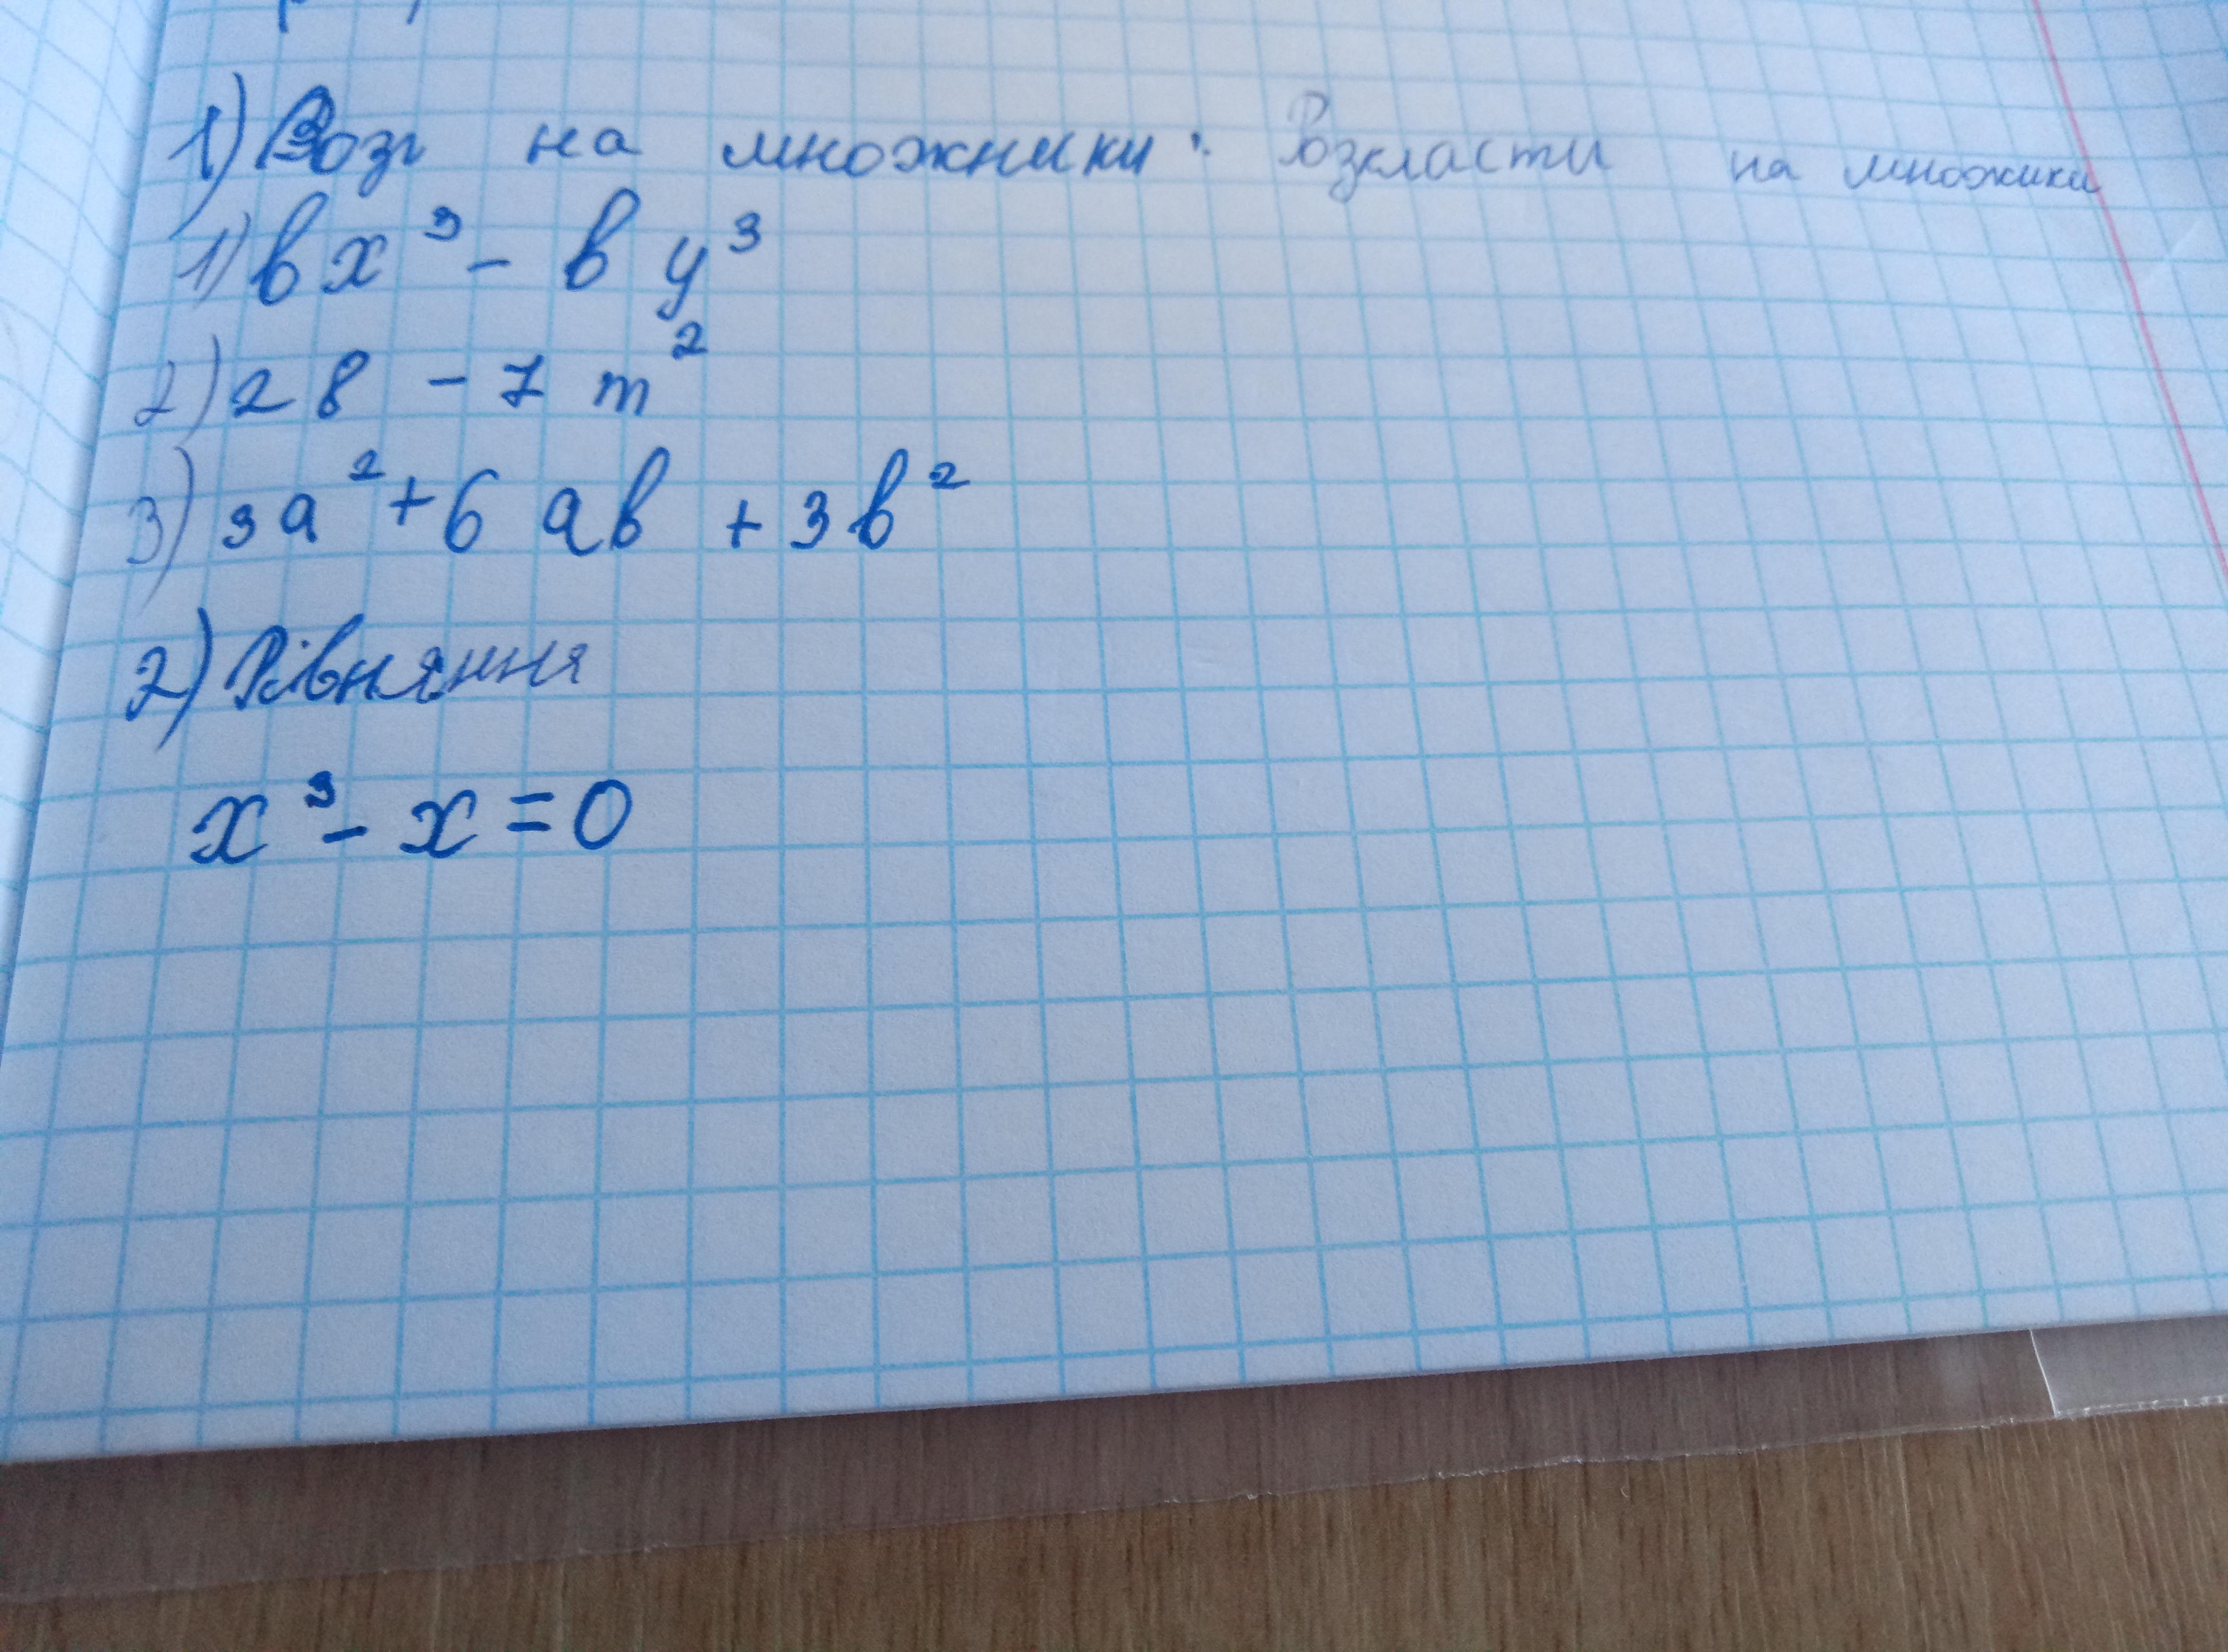 1) Розг на множники: Розкласти на множики
1) bx³ - by³
2) 28 - 7m²
3) 3a² + 6ab + 3b²
2) Рівняння
x³ - x = 0